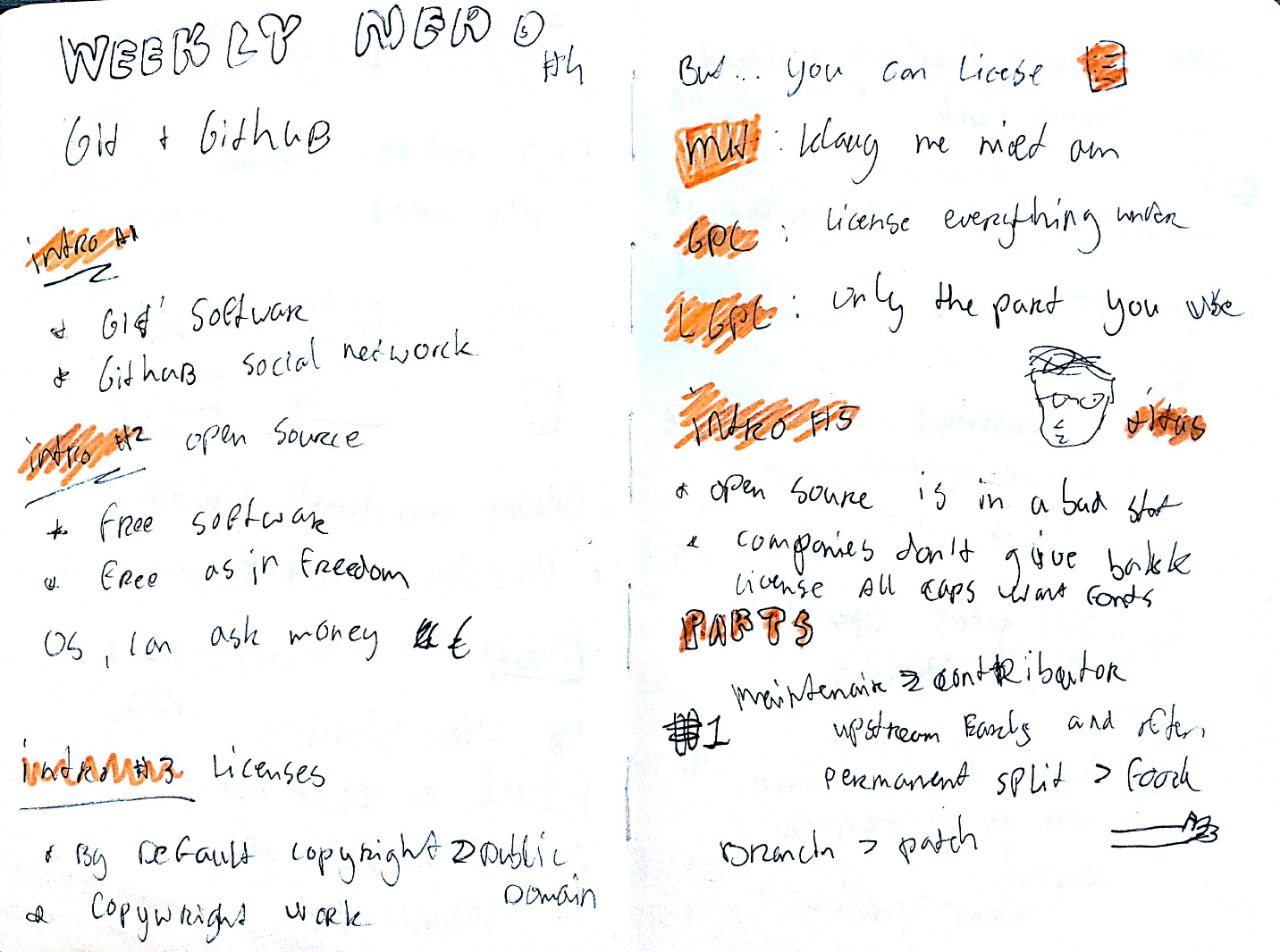 WEEKLY NERD
#4
Git + GithuB
intro #1
* Git' Software
* GithuB social networck
intro #2 open source
* Free software
* Free as in Freedom
OS, can ask money €
intro #3 Licenses
* By Default copyright > Public
Domain
* Copywright work
But... you can License
MIT: klaag me niet aan
GPL: License everything under
LGPL: only the part you use
intro #5 titus
* open source is in a bad
* companies don't give back
License All caps want fonts
PARTS
#1 contributor
upstream Early and often
permanent split > Foork
Branch > patch